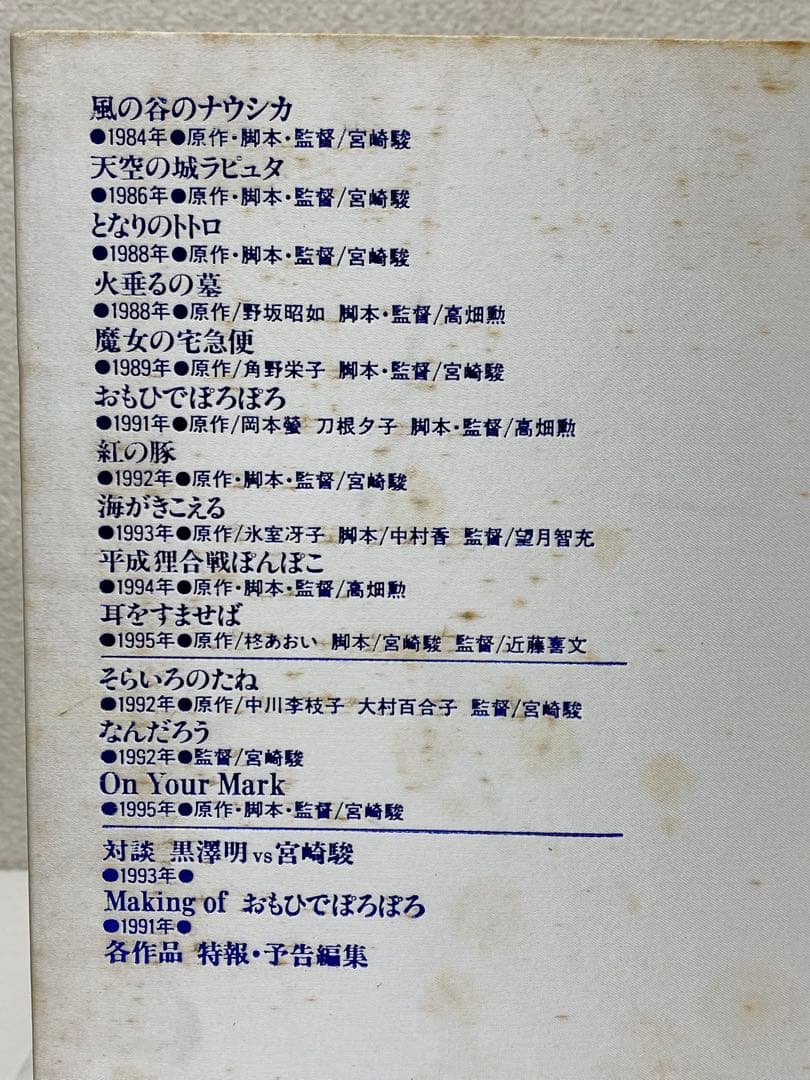 風の谷のナウシカ
●1984年●原作・脚本・監督/宮崎駿
天空の城ラピュタ
●1986年●原作・脚本・監督/宮崎駿
となりのトトロ
●1988年●原作・脚本・監督/宮崎駿
火垂るの墓
●1988年●原作/野坂昭如 脚本・監督/高畑勲
魔女の宅急便
●1989年●原作/角野栄子 脚本・監督/宮崎駿
おもひでぽろぽろ
●1991年●原作/岡本螢 刀根夕子 脚本・監督/高畑勲
紅の豚
●1992年●原作・脚本・監督/宮崎駿
海がきこえる
●1993年●原作/氷室冴子 脚本/中村香 監督/望月智充
平成狸合戦ぽんぽこ
●1994年●原作・脚本・監督/高畑勲
耳をすませば
●1995年●原作/柊あおい 脚本/宮崎駿 監督/近藤喜文
そらいろのたね
●1992年●原作/中川李枝子 大村百合子 監督/宮崎駿
なんだろう
●1992年●監督/宮崎駿
On Your Mark
●1995年●原作・脚本・監督/宮崎駿
対談 黒澤明vs宮崎駿
●1993年●
Making of おもひでぽろぽろ
●1991年●
各作品 特報・予告編集